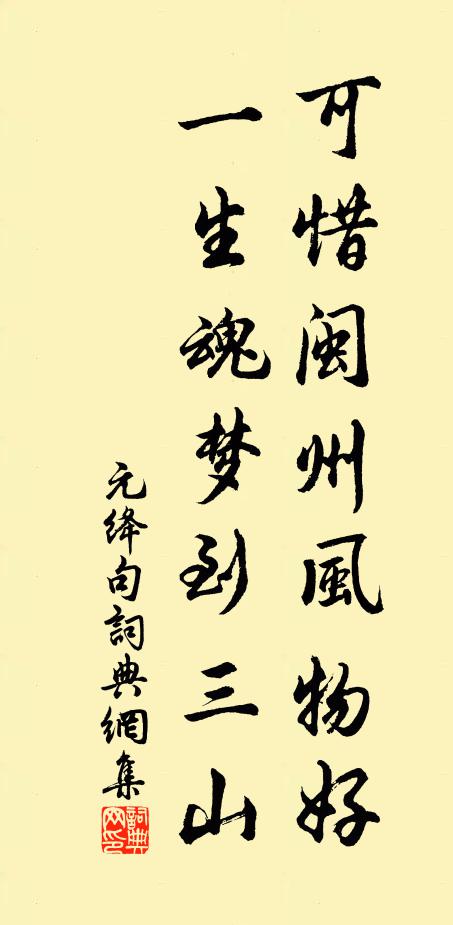 可惜闽州風物好
一生魂梦到三山
元绛句詞典網集
詞典网印